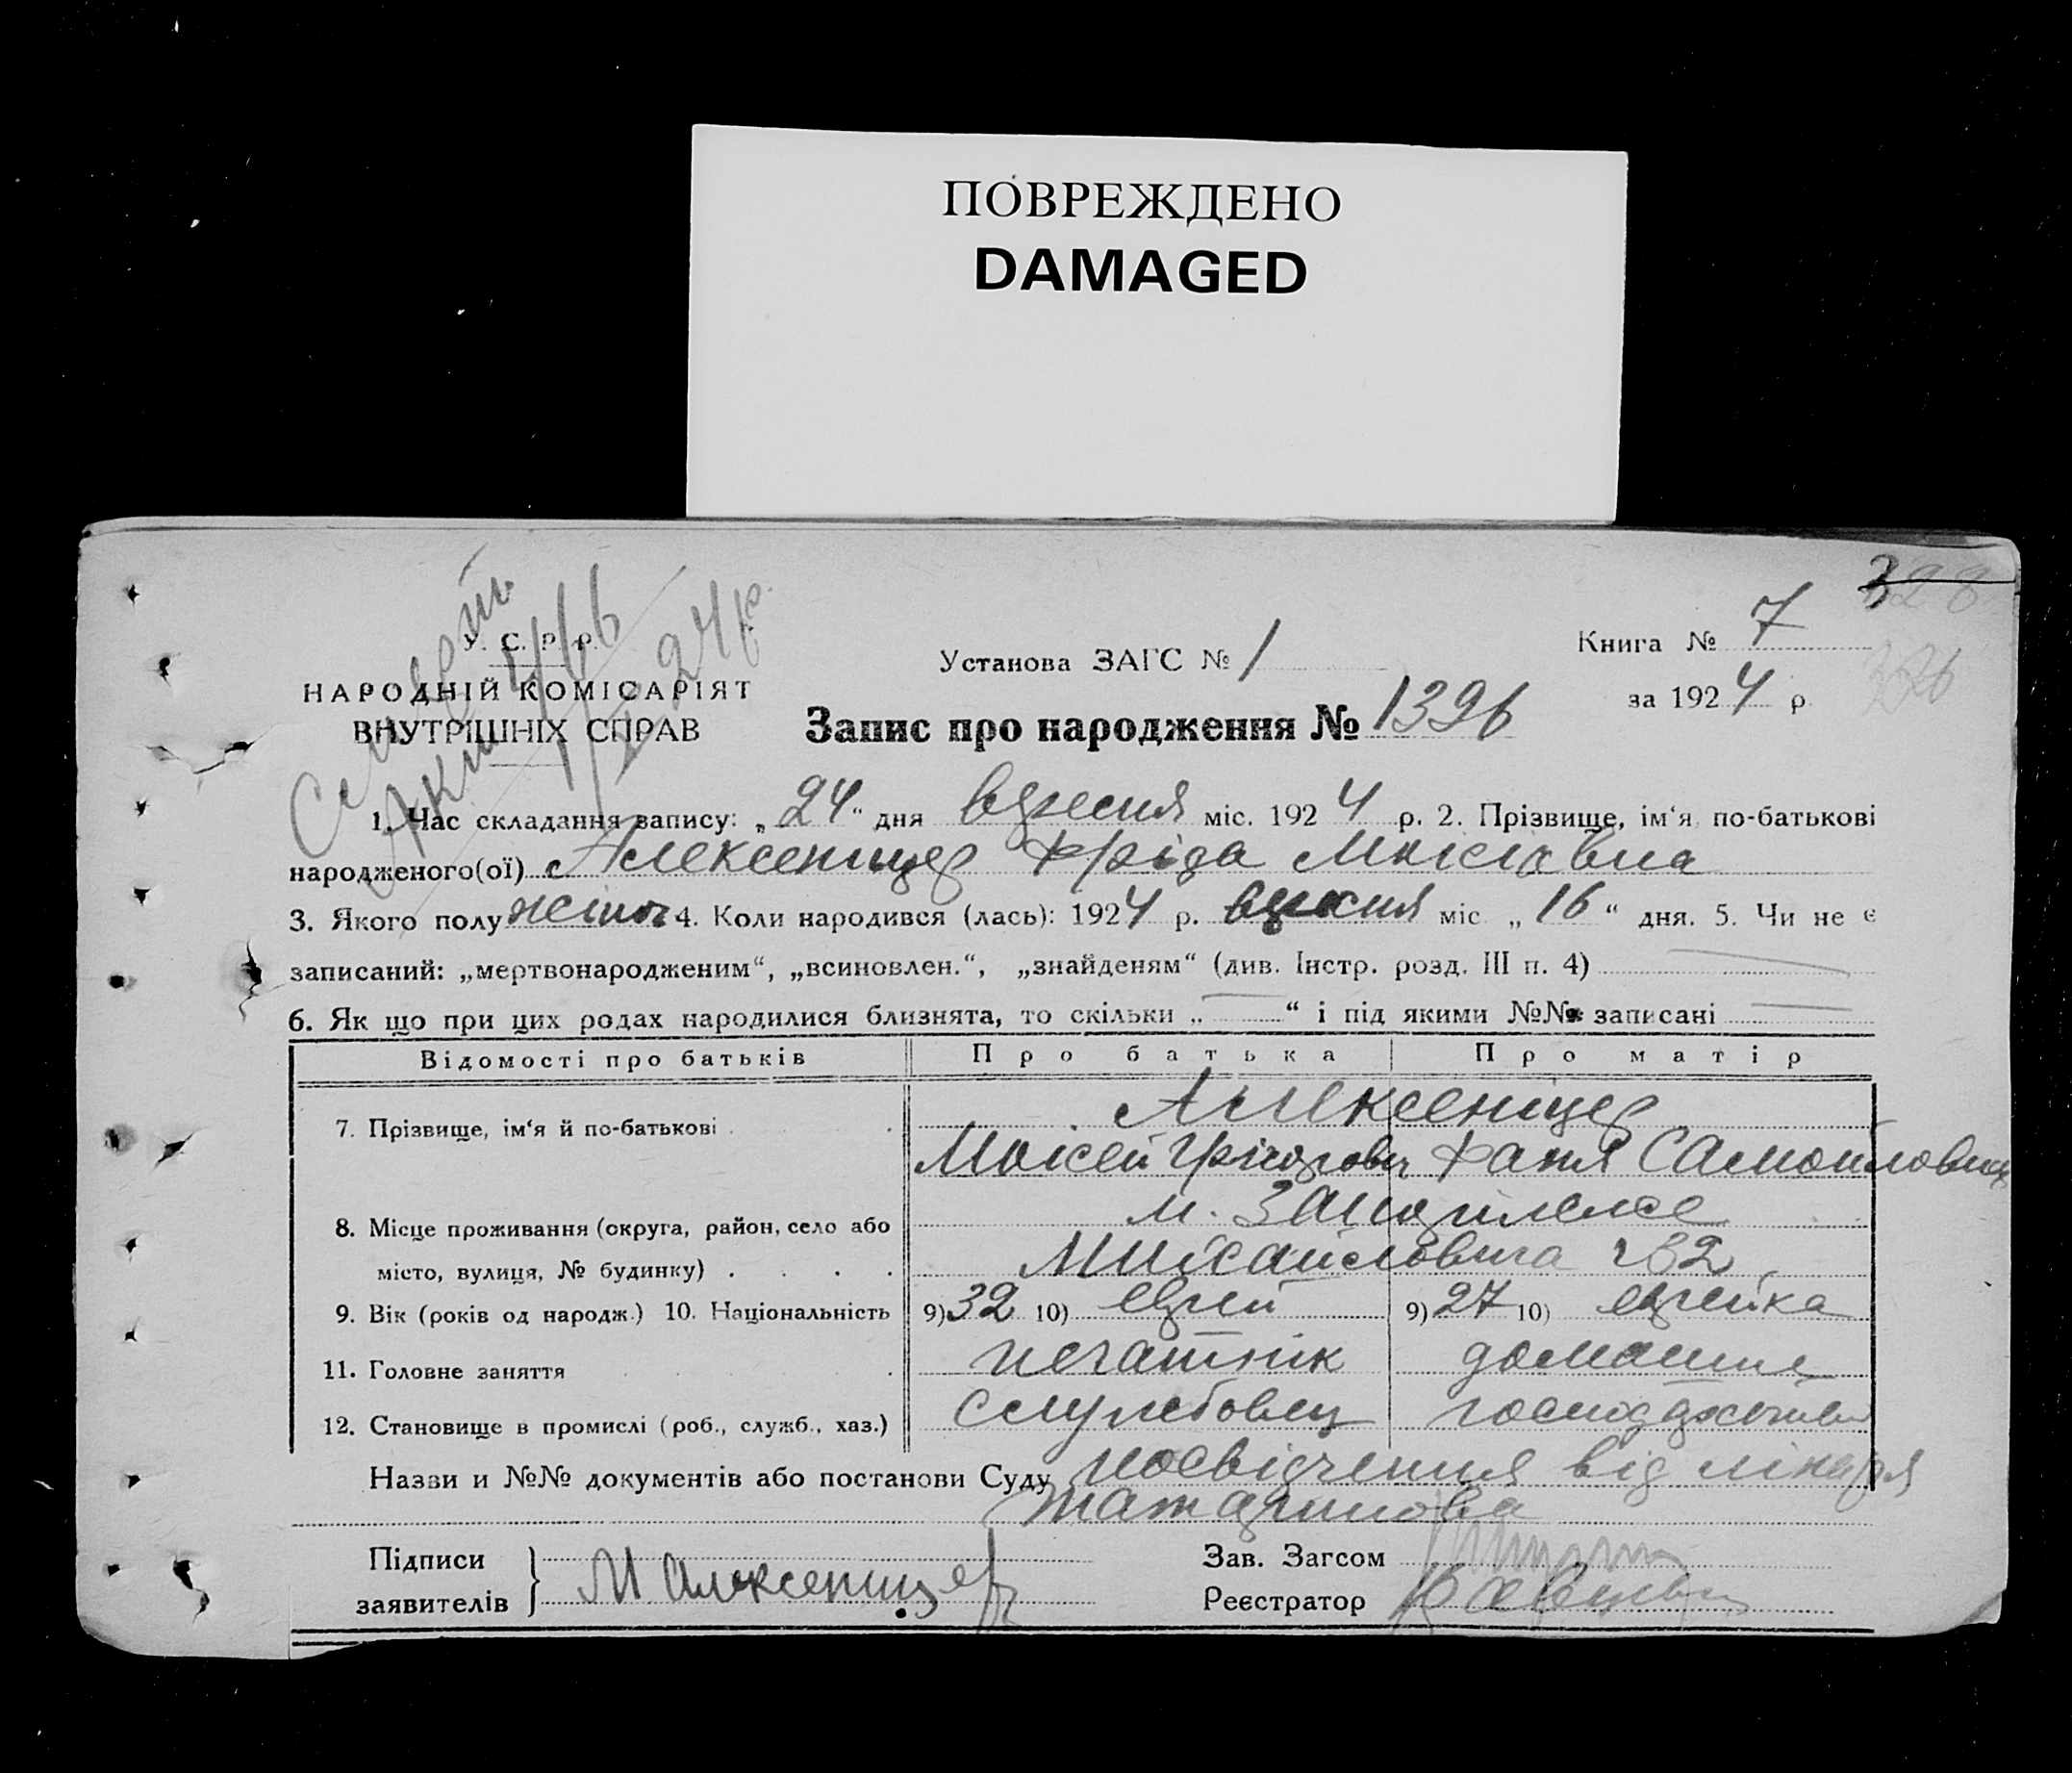 ПОВРЕЖДЕНО
DAMAGED
У. С. Р. Р.
НАРОДНІЙ КОМІСАРІЯТ
ВНУТРІШНІХ СПРАВ
Установа ЗАГС № 1
Книга № 7
за 1924 р.
Запис про народження № 1396
1. Час складання запису: „24“ дня вересня міс. 1924 р. 2. Прізвище, ім‘я, по-батькові
народженого(ої) Алексеницер Фріда Моісіївна
3. Якого полу жіноч 4. Коли народився (лась): 1924 р. вересня міс „16“ дня. 5. Чи не є
записаний: „мертвонародженим“, „всиновлен.“, „знайденям“ (див. Інстр. розд. III п. 4)
6. Як що при цих родах народилися близнята, то скільки „ “ і під якими №№ записані
Відомості про батьків Про батька Про матір
7. Прізвище, ім‘я й по-батькові Алексеницер
Моисей Грігорович Фаня Самойловна
8. Місце проживання (округа, район, село або м. Запоріжже
місто, вулиця, № будинку) Михайлівська 32
9. Вік (років од народж.) 10. Національність 9) 32 10) еврей 9) 27 10) еврейка
11. Головне заняття печатнік домашнє
12. Становище в промислі (роб., служб., хаз.) службовец господарство
Назви и №№ документів або постанови Суду посвідчення від лікаря
Татаринова
Підписи
заявителів М Алексеницер
Зав. Загсом
Реєстратор